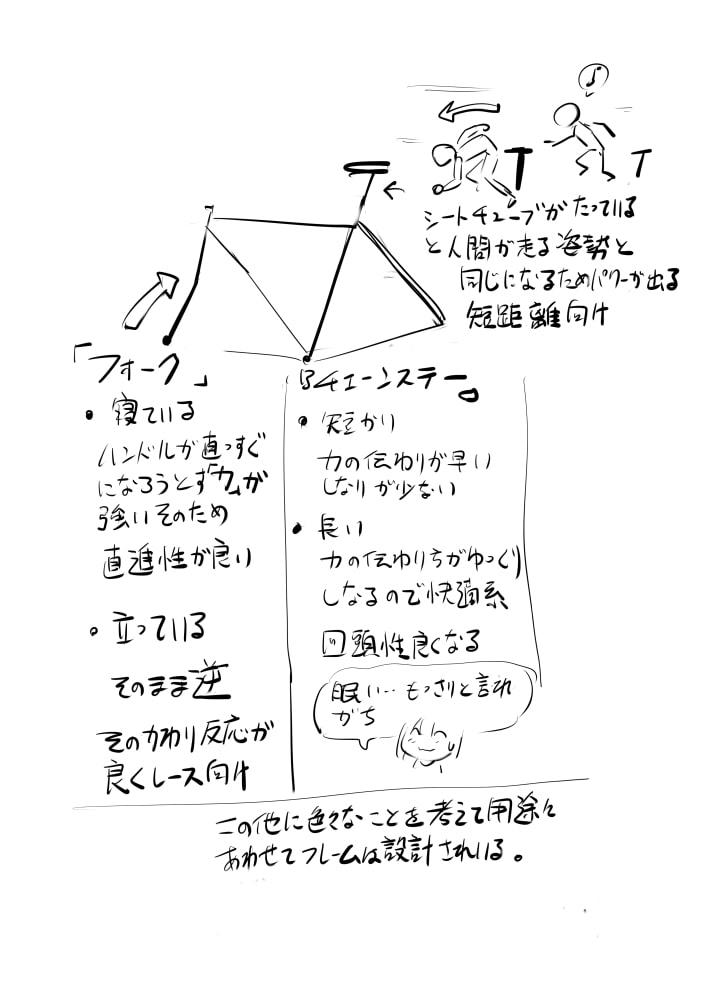 シートチューブがたっている
と人間が走る姿勢と
同じになるためパワーが出る
短距離向け
「フォーク」
• 寝ている
ハンドルが直っすぐ
になろうとす「力」が
強いそのため
直進性が良い
• 立っている
そのまま逆
そのかわり反応が
良くレース向け
チェーンステー。
• 短かい
力の伝わりが早い
しなりが少ない
• 長い
力の伝わり方がゆっくり
しなるので快適系
回頭性良くなる
眠い… もっさりと言われ
がち
この他に色々なことを考えて用途に
あわせてフレームは設計されいる。